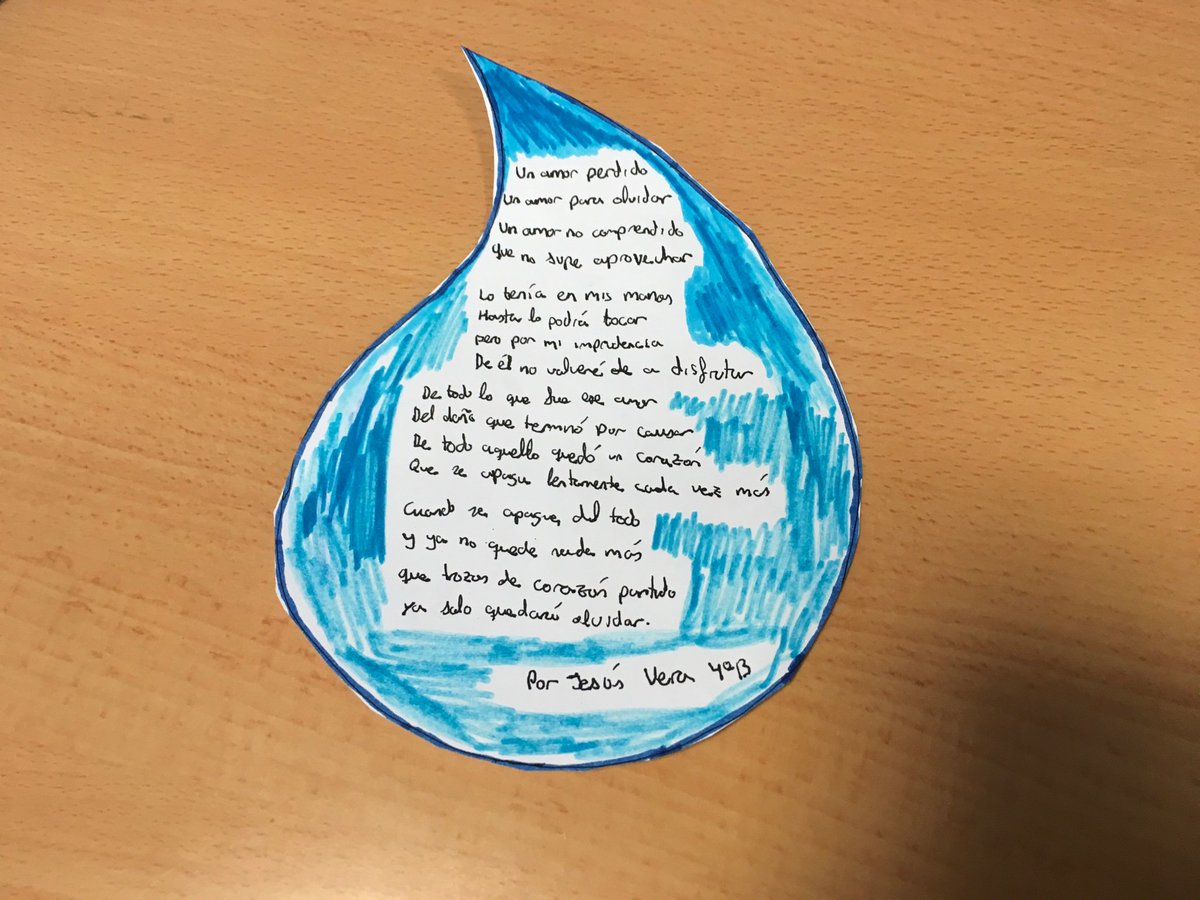 Un amor perdido
Un amor para olvidar
Un amor no comprendido
que no supe aprovechar
Lo tenía en mis manos
Hasta lo podía tocar
pero por mi imprudencia
De él no volveré de a disfrutar
De todo lo que fue ese amor
Del daño que terminó por causar
De todo aquello quedó un corazón
Que se apaga lentamente cada vez más
Cuando se apague del todo
y ya no quede nada más
que trozos de corazón partido
ya solo quedará olvidar.
Por Jesús Vera 4ºB